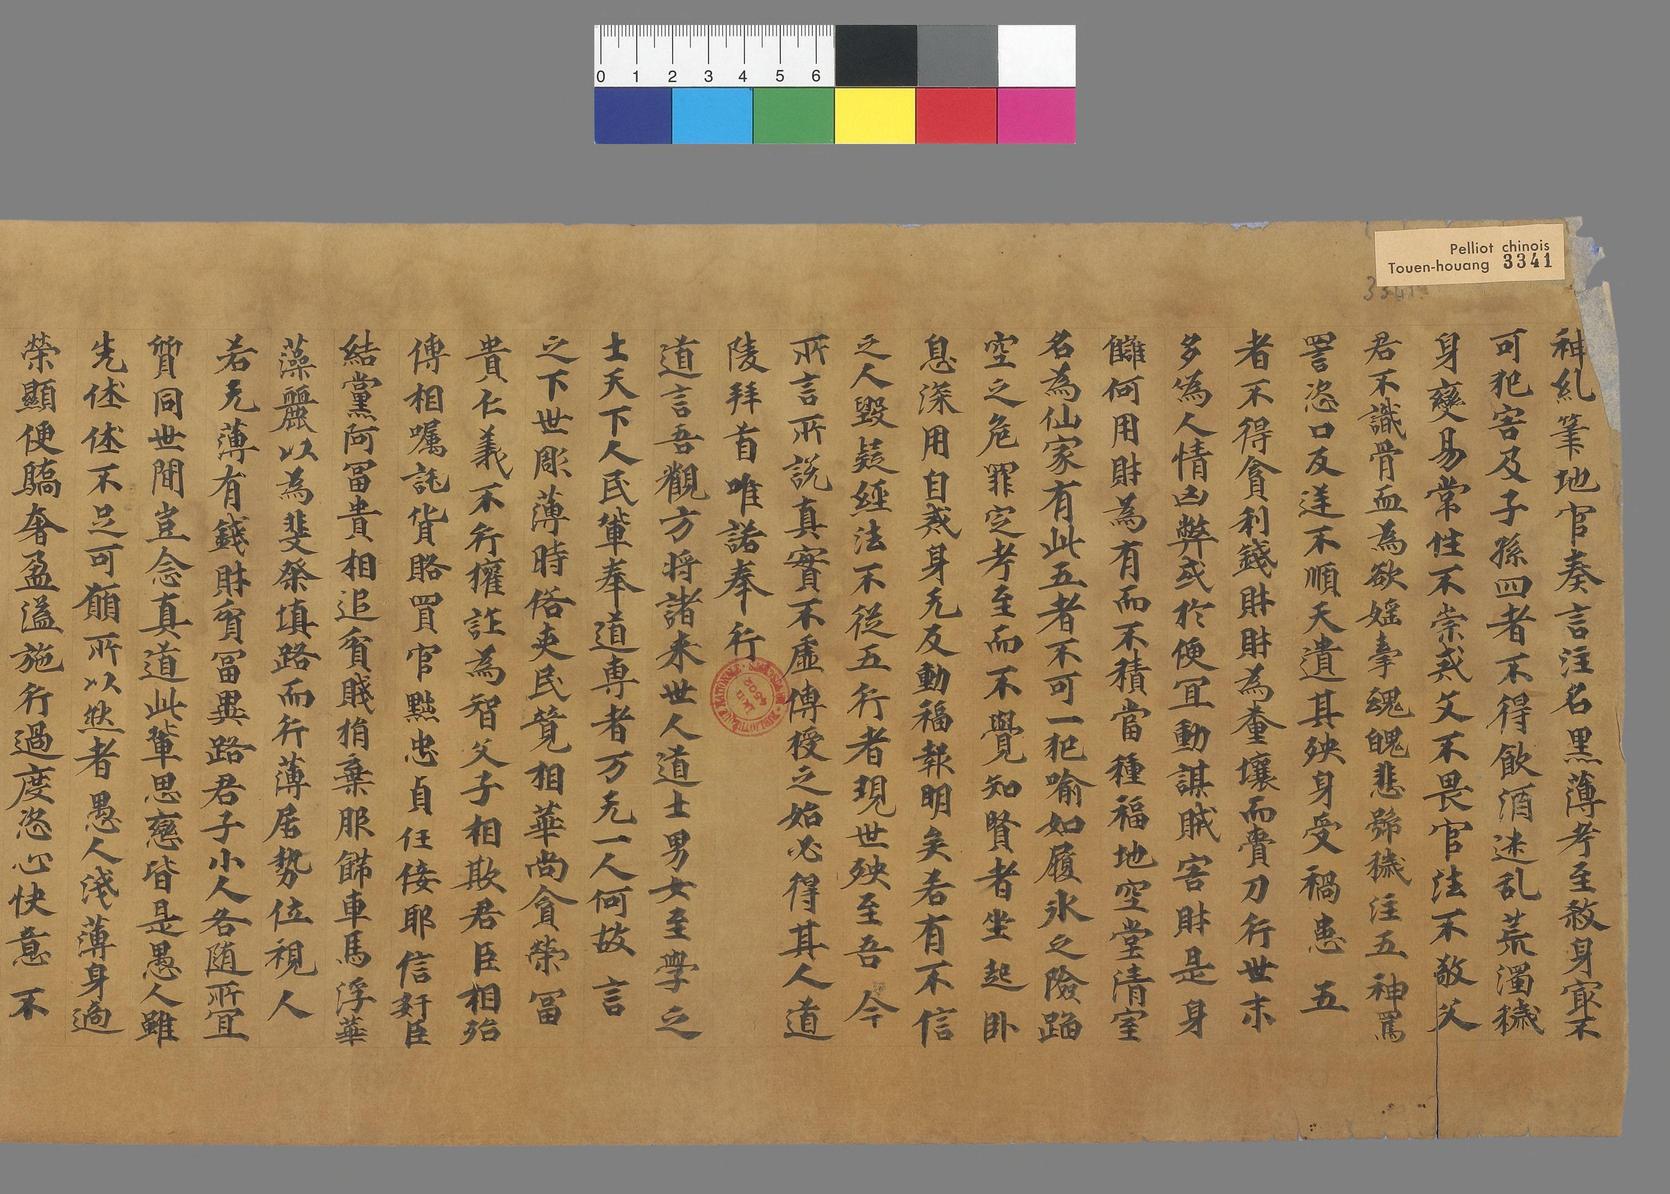 0 1 2 3 4 5 6
Pelliot chinois
Touen-houang 3341
3341
神糺筆地官奏言注名黑薄考至赦身冣不
可犯害及子孫四者不得飲酒迷乱荒濁穢
身變易常性不崇戒文不畏官法不敬父
君不識骨血為欲婬牽䰟䰟悲號穢注五神罵
詈恣口反逆不順天遣其殃身受禍患五
者不得貪利錢財財為糞壤而賣刀行世末
多為人情凶弊或於便冝動謀賊害財是身
讎何用財為有而不積當種福地空堂清室
名為仙家有此五者不可一犯喻如履氷之險蹈
空之危罪定考至而不覺知賢者坐起卧
息深用自戒身无反動福報明矣若有不信
之人毀疑經法不從五行者現世殃至吾今
所言所說真實不虛傳授之始必得其人道
陵拜首唯諾奉行
道言吾觀方將諸来世人道士男女至學之
士天下人民輩奉道専者万无一人何故言
之下世彫薄時俗夷民竟相華尚貪榮冨
貴仁義不行攉詐為智父子相欺君臣相殆
傳相囑託貨賂買官黜忠貞任佞耶信姧臣
結黨阿冨貴相追貧賤捐棄服飾車馬浮華
藻麗以為斐粲填路而行薄居勢位視人
若无薄有錢財貧冨異路君子小人各随所冝
質同世間豈念真道此輩思戀皆是愚人雖
先怵怵不足可願所以然者愚人淺薄身適
榮顯便驕奢盈溢施行過度恣心快意不